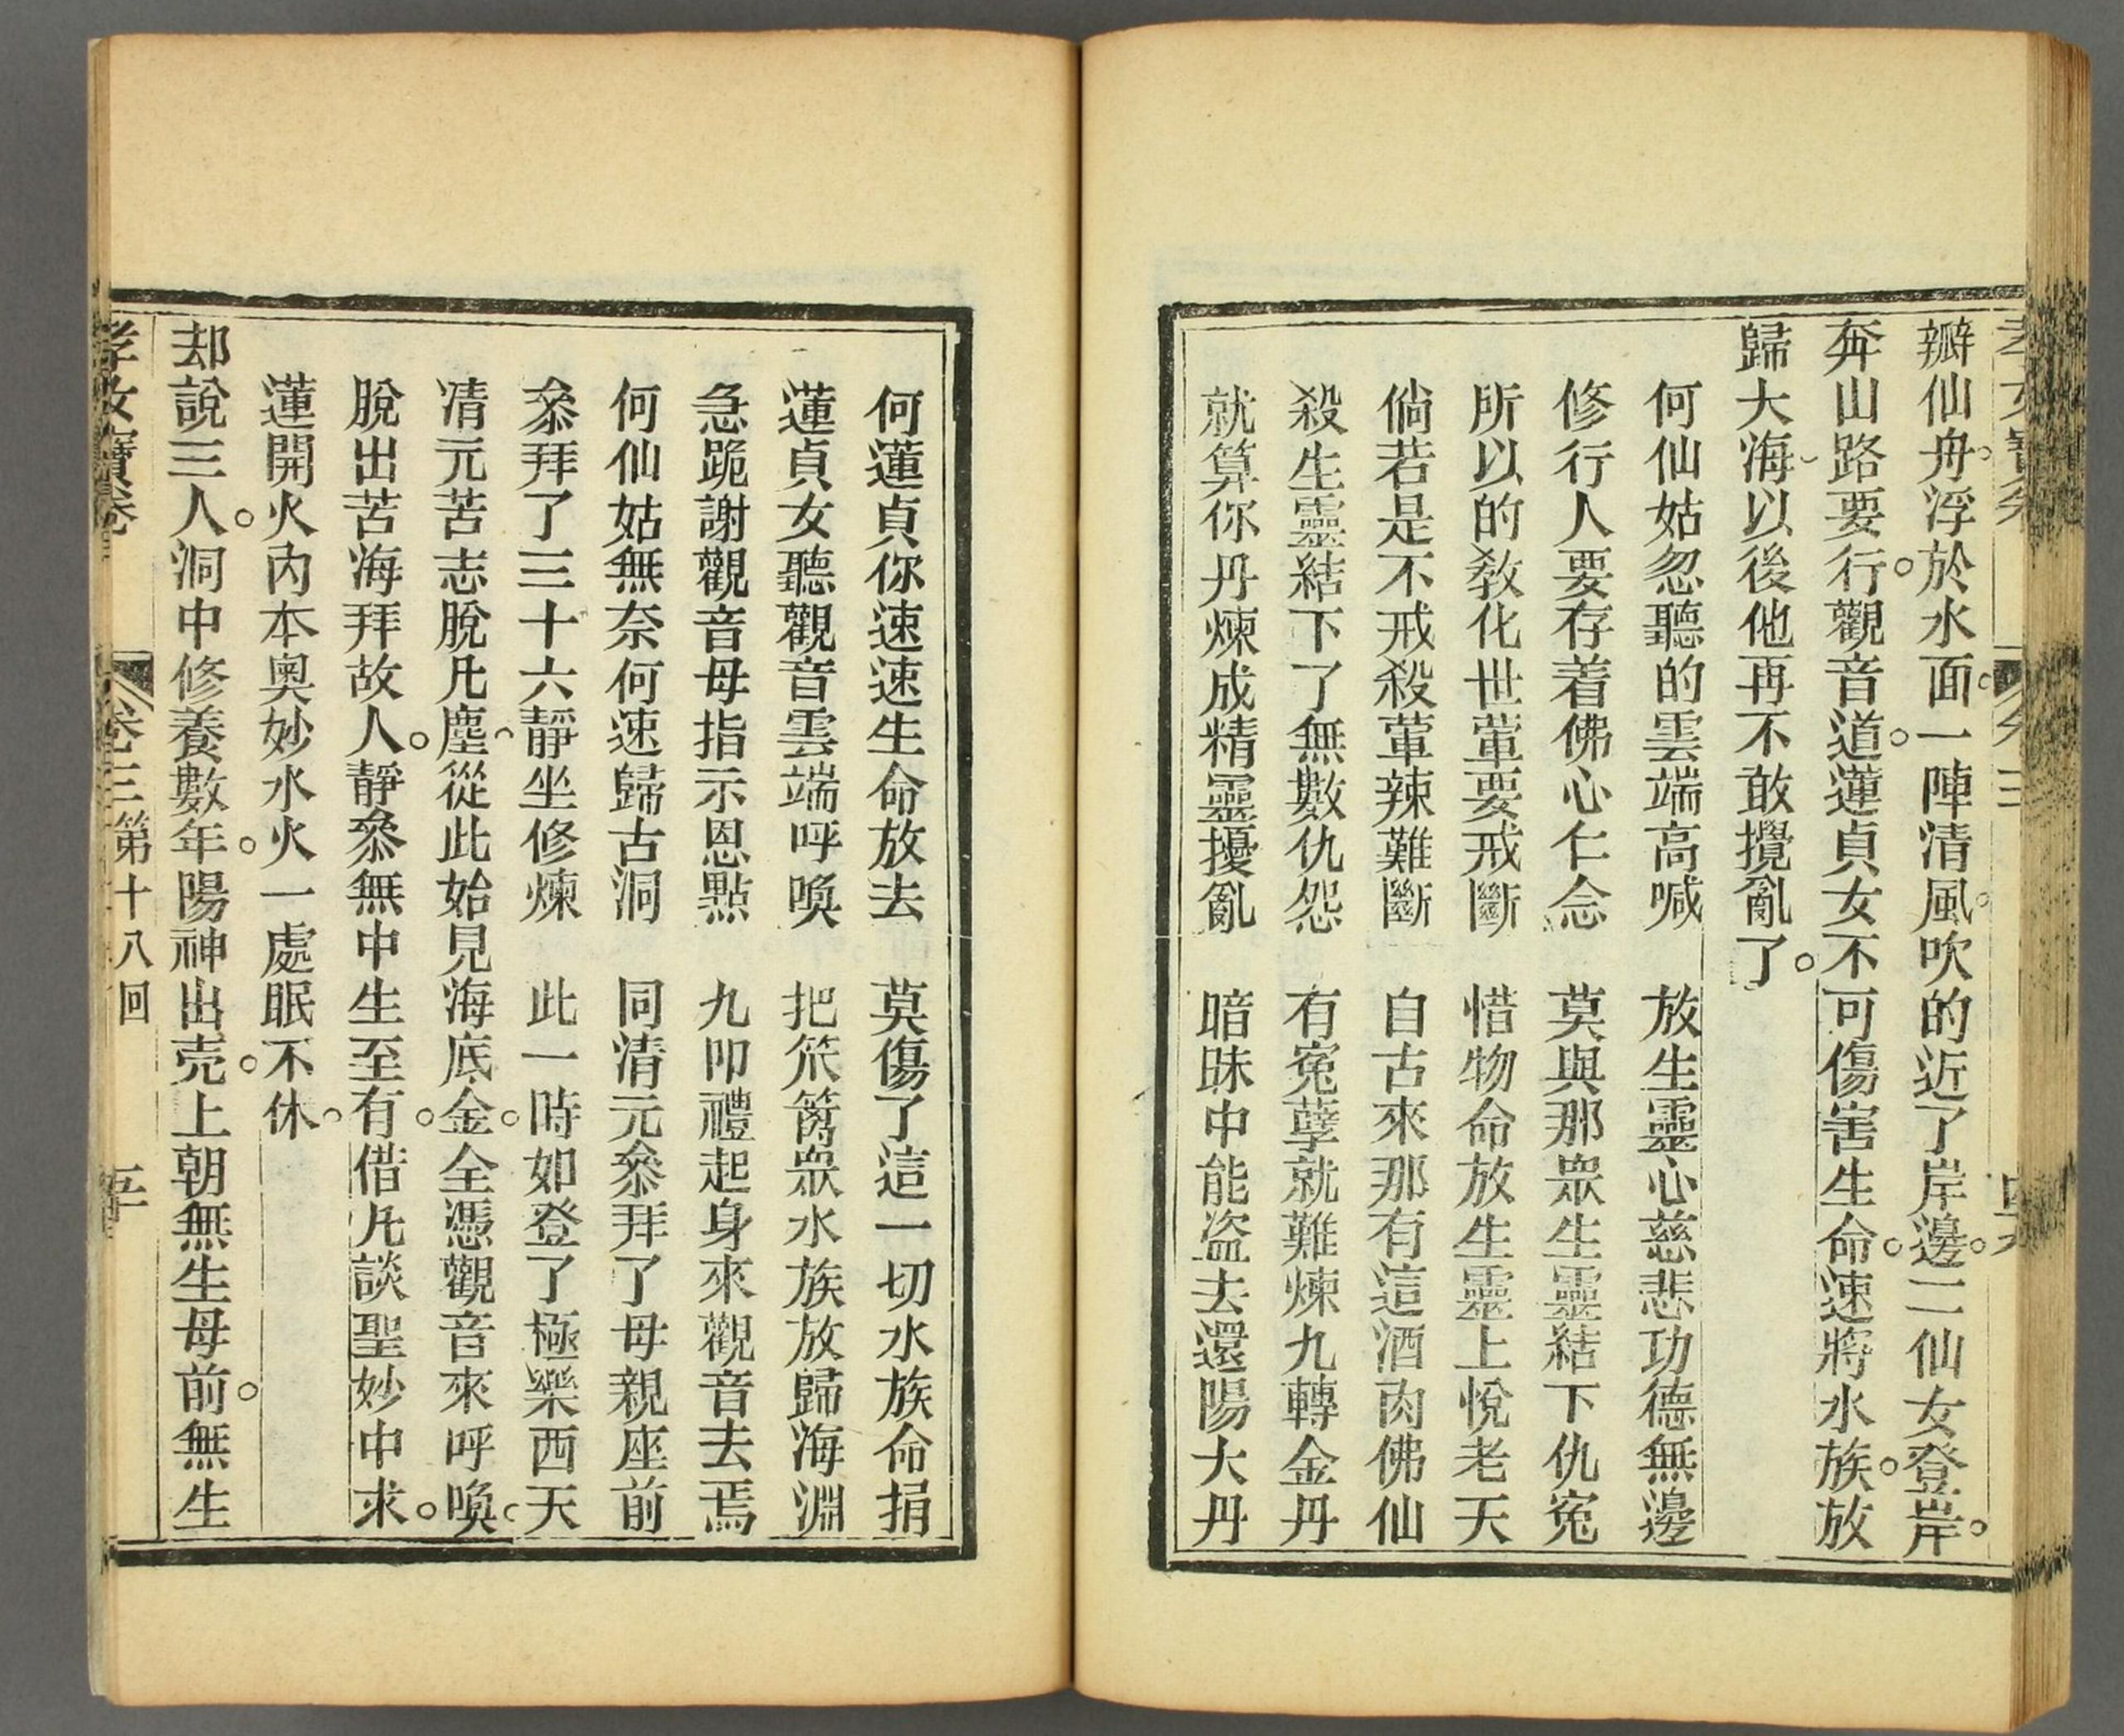 瓣仙舟浮於水面一陣清風吹的近了岸邊二仙女登岸
奔山路要行觀音道蓮貞女不可傷害生命速將水族放
歸大海以後他再不敢攪亂了
何仙姑忽聽的雲端高喊　放生靈心慈悲功德無邊
修行人要存着佛心仁念　莫與那眾生靈結下仇寃
所以的教化世葷要戒斷　惜物命放生靈上悅老天
倘若是不戒殺葷辣難斷　自古來那有這酒肉佛仙
殺生靈結下了無數仇怨　有寃孽就難煉九轉金丹
就算你丹煉成精靈擾亂　暗昧中能盜去還陽大丹
何蓮貞你速速生命放去　莫傷了這一切水族命捐
蓮貞女聽觀音雲端呼喚　把笊篱眾水族放歸海淵
急跪謝觀音母指示恩點　九叩禮起身來觀音去焉
何仙姑無奈何速歸古洞　同清元叅拜了母親座前
叅拜了三十六靜坐修煉　此一時如登了極樂西天
清元苦志脫凡塵從此始見海底金全憑觀音來呼喚
脫出苦海拜故人靜叅無中生至有借凡談聖妙中求
蓮開火內本奧妙水火一處眠不休
却說三人洞中修養數年陽神出売上朝無生母前無生
孝女寶卷　卷三第十八回　五十